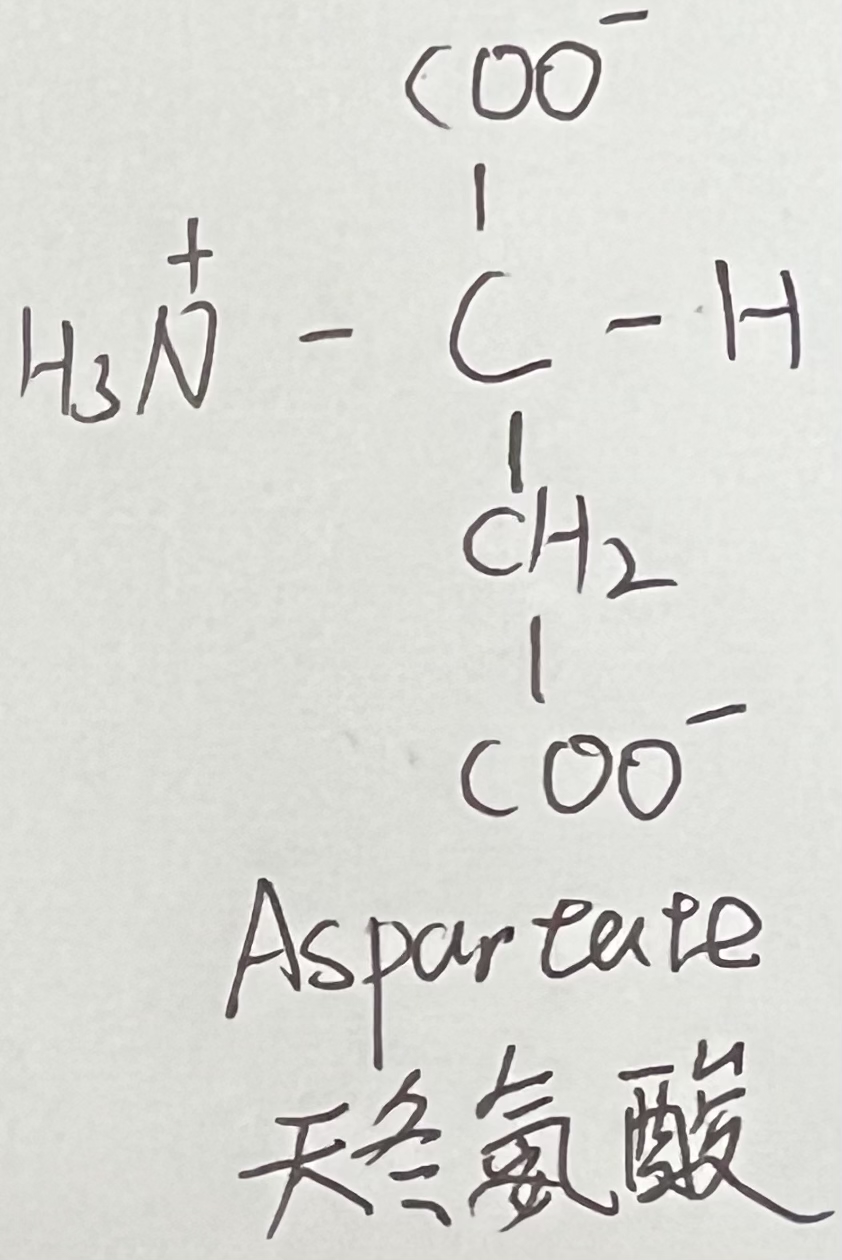 COO⁻
|
H₃N⁺ - C - H
|
CH₂
|
COO⁻
Aspartate
天冬氨酸